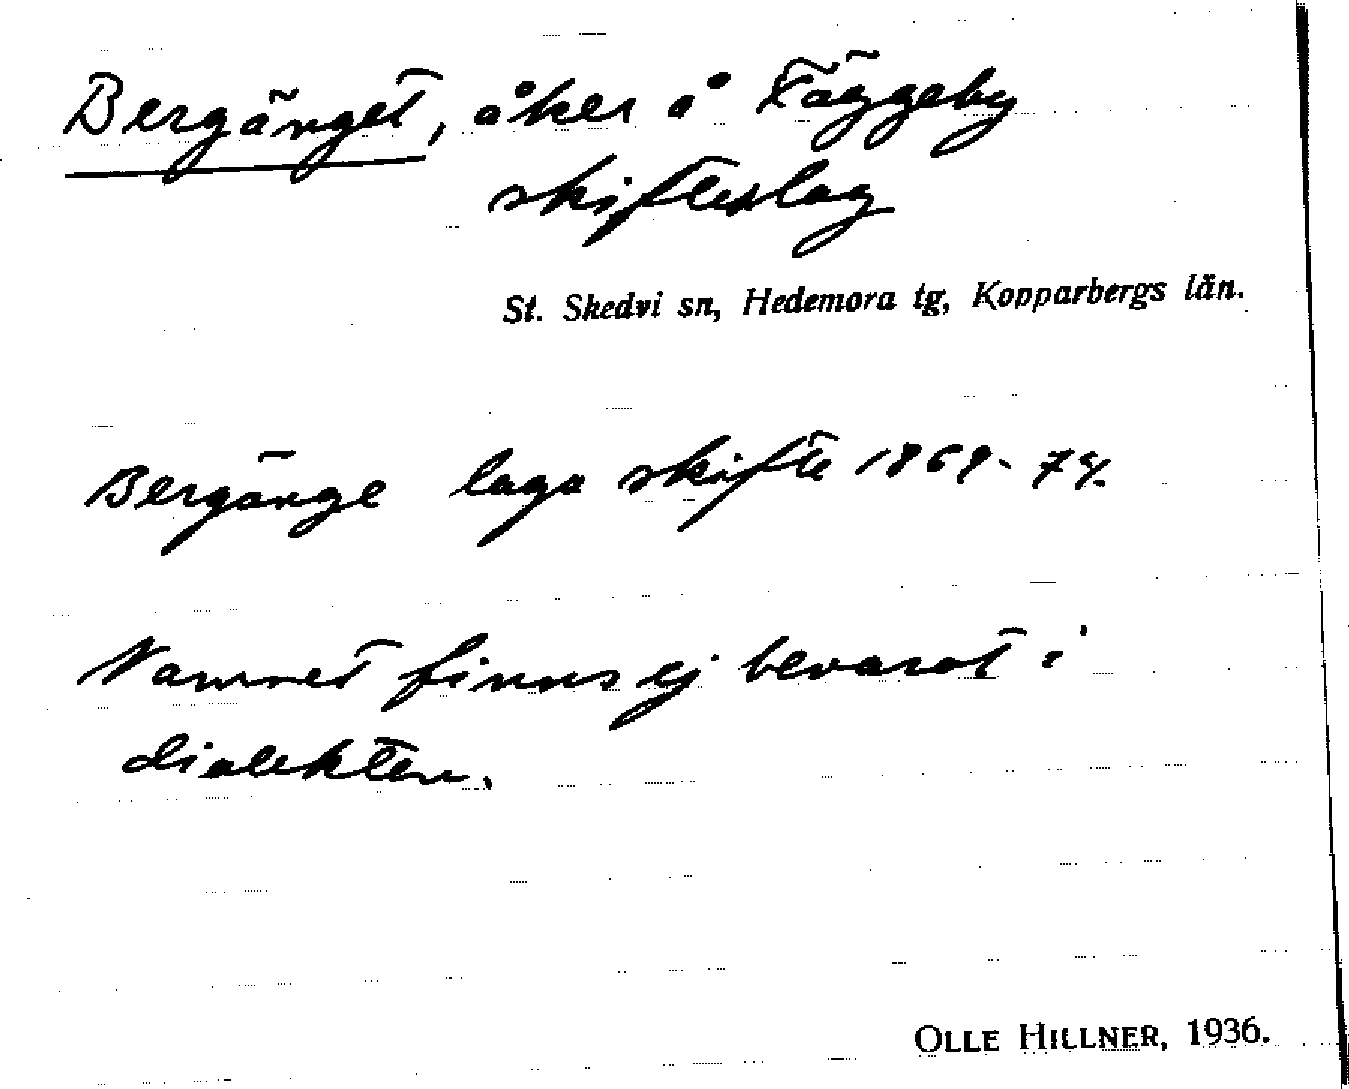 Bergänget, åker å Fäggeby
skifteslag
St. Skedvi sn, Hedemora tg, Kopparbergs län.
Bergänge laga skifte 1869-74.
Namnet finns ej bevarat i
dialekten.
OLLE HILLNER, 1936.